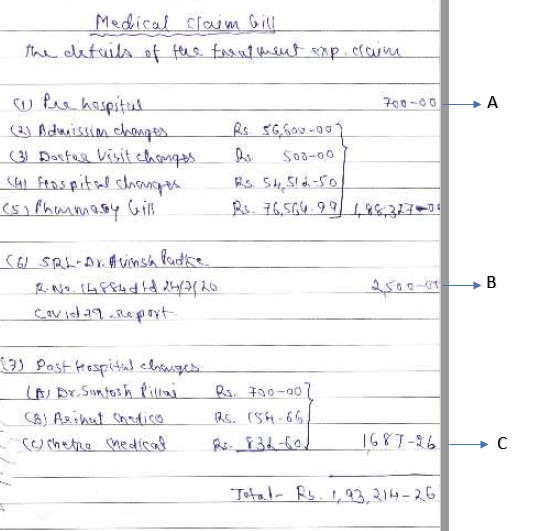 Medical Claim Bill
The details of the treatment exp. claim
(1) Pre hospital 700-00 A
(2) Admission charges Rs. 56,600-00
(3) Doctor Visit charges Rs. 500-00
(4) Hospital charges Rs. 54,512-50
(5) Pharmasy bill Rs. 76,564-99 1,88,327-00
(6) SRL-Dr. Avinsh Padke
R.No. 14884 dtd 24/7/20 2,500-00 B
Covid 29 Report
(7) Post Hospital charges
(A) Dr. Santosh Pillai Rs. 700-00
(B) Arihut medico Rs. 154-66
(C) Chetna Medical Rs. 832-60 1,687-26 C
Total- Rs. 1,93,214-26